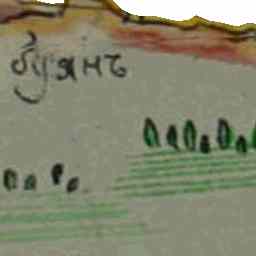 буянъ